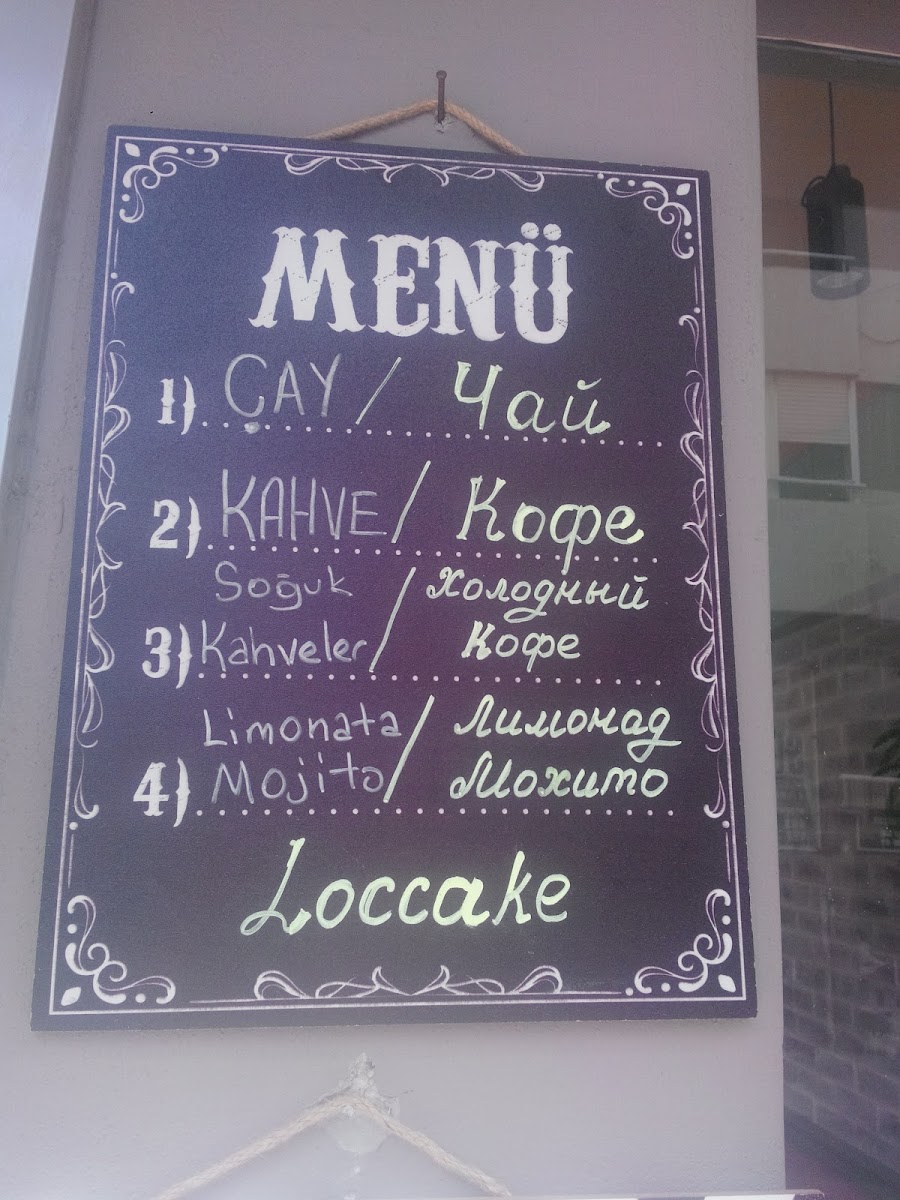 MENÜ
1) ÇAY / Чай
2) KAHVE / Кофе
Soğuk / Холодный
3) Kahveler / Кофе
Limonata / Лимонад
4) Mojito / Мохито
Loccake